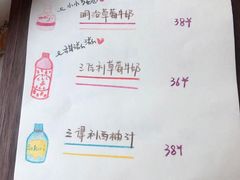 明治草莓牛奶 38元
三瓦利草莓牛奶 36元
三得利西柚汁 38元